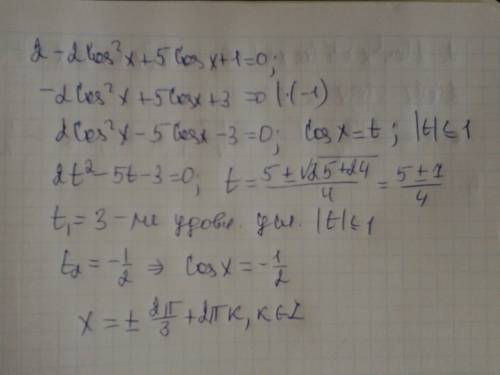 2 - 2cos²x + 5cosx + 1 = 0;
-2cos²x + 5cosx + 3 = 0 |·(-1)
2cos²x - 5cosx - 3 = 0; cosx = t; |t| ≤ 1
2t² - 5t - 3 = 0; t = (5 ± √(25+24))/4 = (5 ± 7)/4
t₁ = 3 - не удовл. усл. |t| ≤ 1
t₂ = -1/2 ⇒ cosx = -1/2
x = ± 2π/3 + 2πк, к ∈ Z